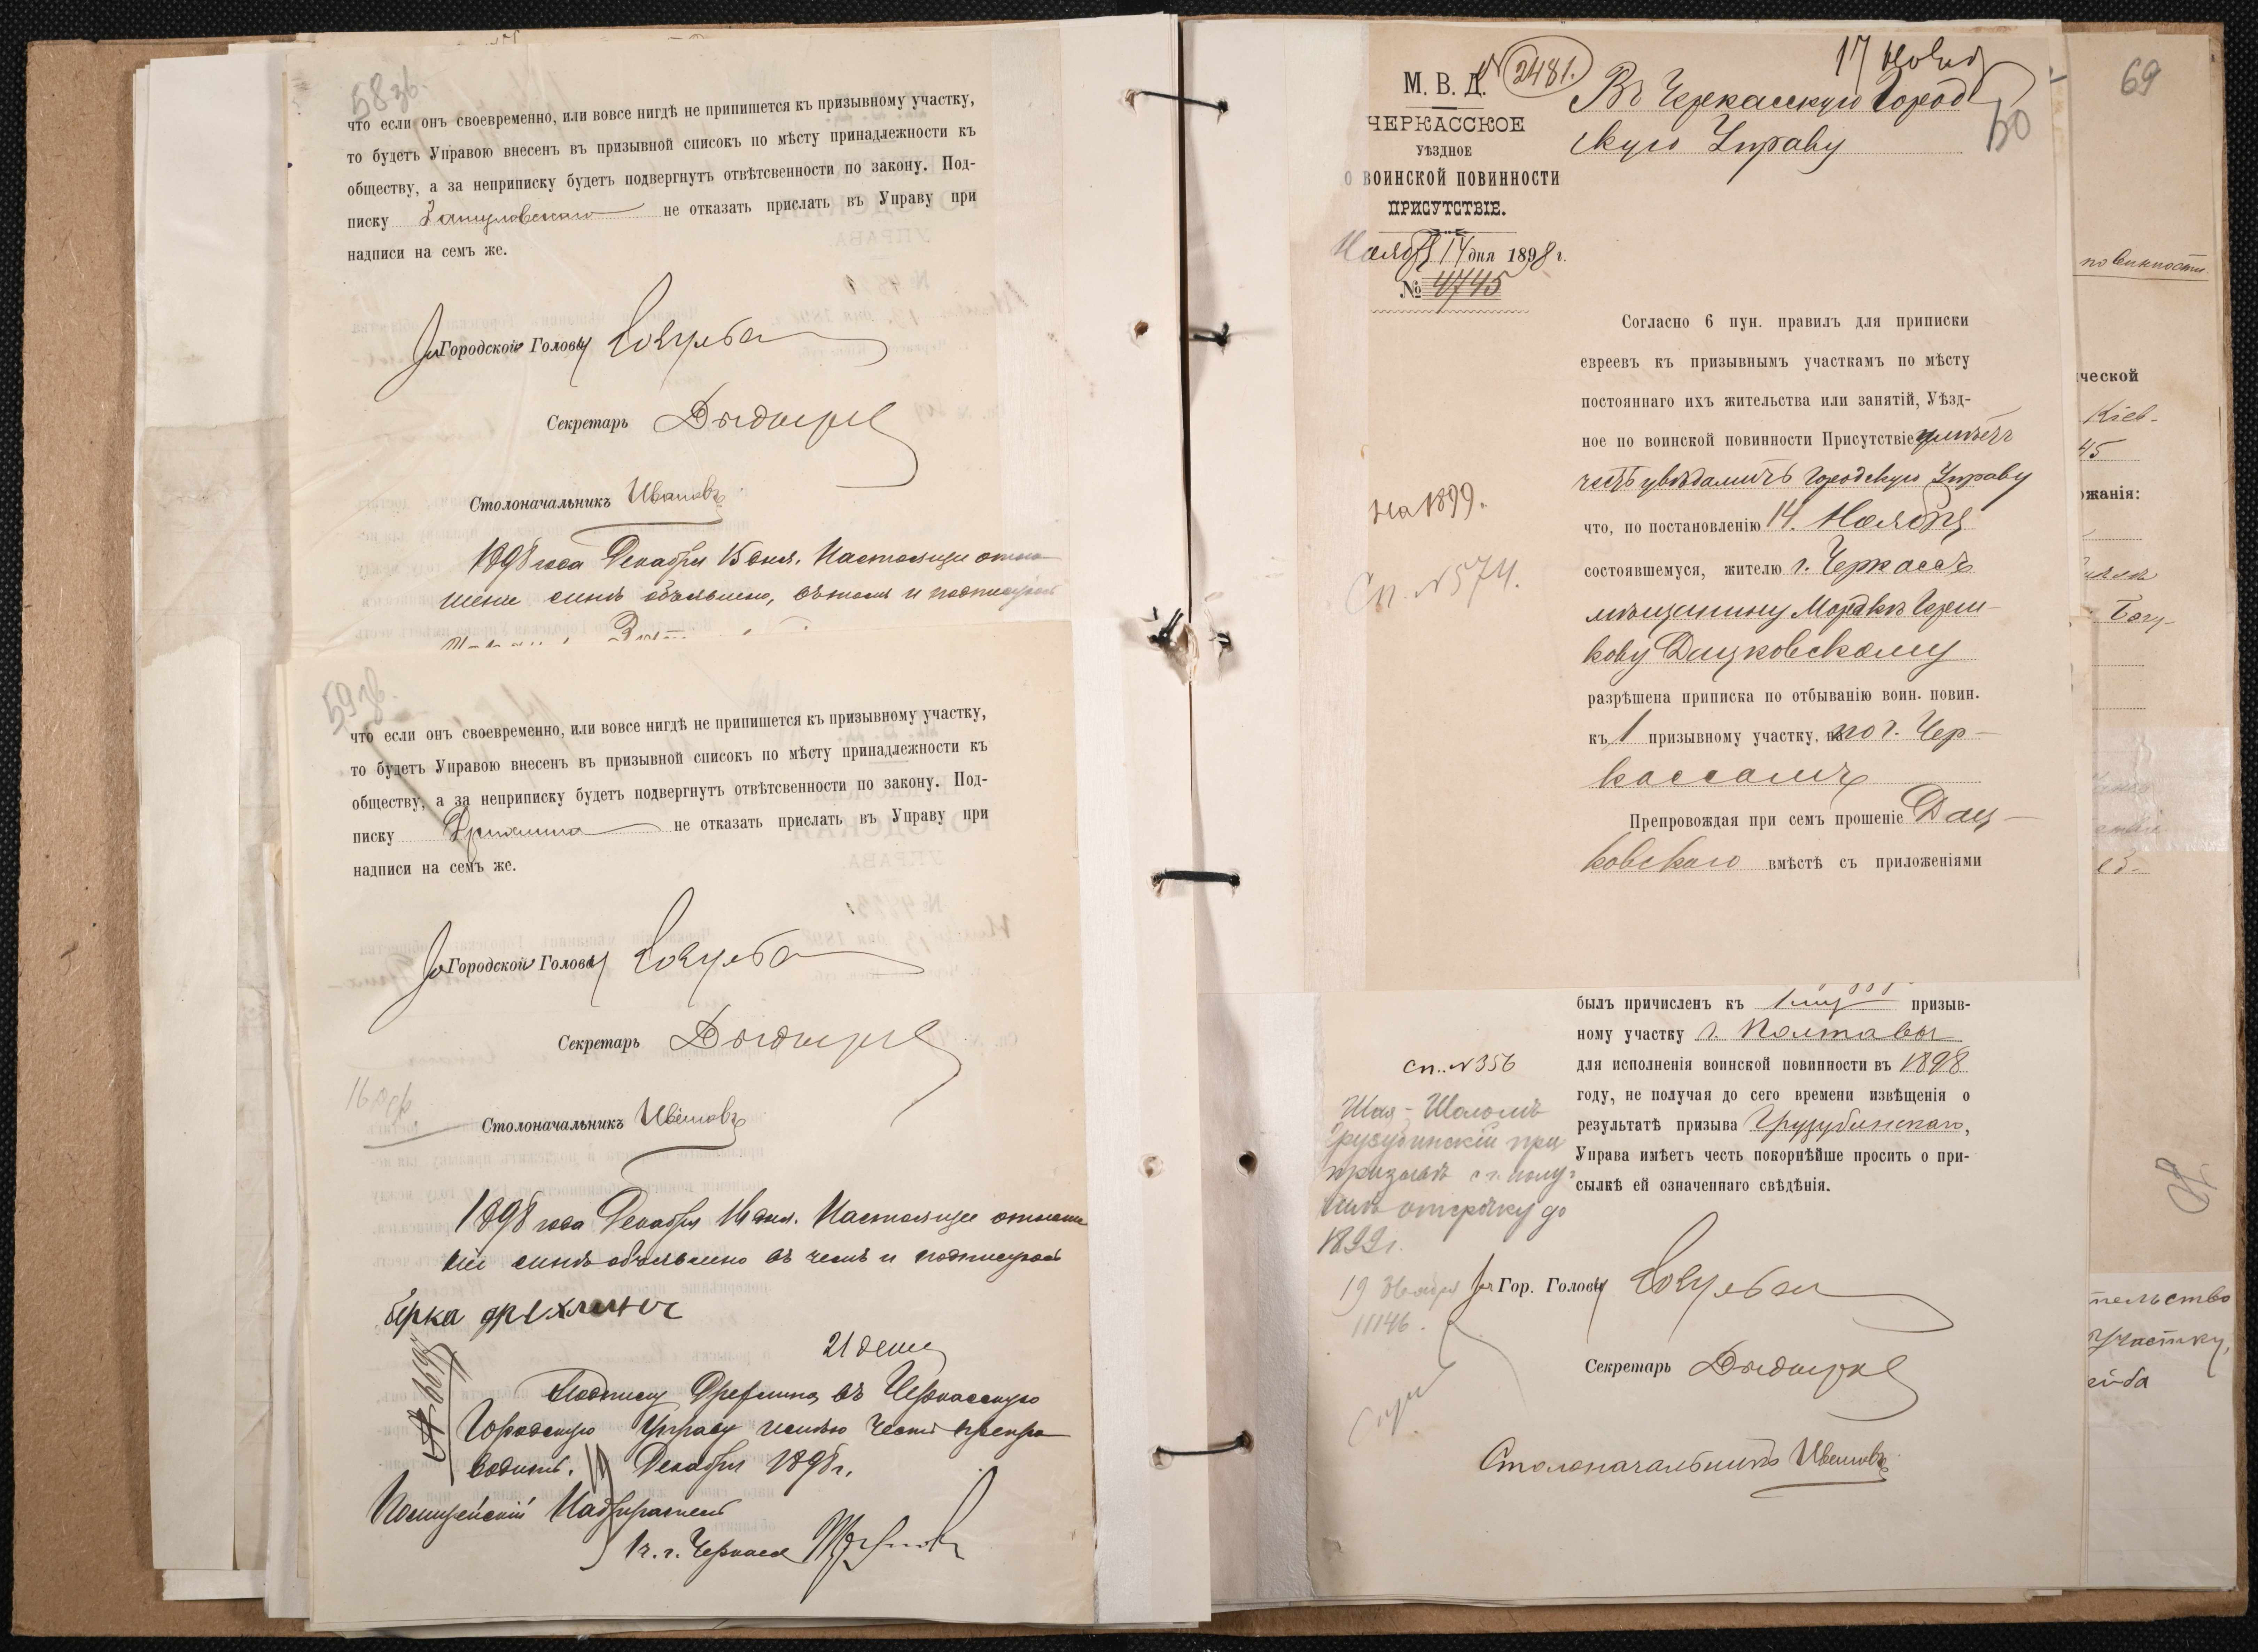 58 зв.
что если онъ своевременно, или вовсе нигдѣ не припишется къ призывному участку,
то будетъ Управою внесенъ въ призывной списокъ по мѣсту принадлежности къ
обществу, а за неприписку будетъ подвергнутъ отвѣтсвенности по закону. Под-
писку не отказать прислать въ Управу при
надписи на семъ же.
За Городского Голову
Секретарь
Столоначальникъ Ивановъ
1898 года Декабря 15 дня. Настоящее отно-
шеніе симъ объявлено, въ чемъ и подписуюсь
59 зв.
что если онъ своевременно, или вовсе нигдѣ не припишется къ призывному участку,
то будетъ Управою внесенъ въ призывной списокъ по мѣсту принадлежности къ
обществу, а за неприписку будетъ подвергнутъ отвѣтсвенности по закону. Под-
писку не отказать прислать въ Управу при
надписи на семъ же.
За Городского Голову
Секретарь
Столоначальникъ Ивановъ
1898 года Декабря 16 дня. Настоящее отноше
ніе симъ объявлено въ чемъ и подписуюсь
берка
21 дека
Подписку въ Черкасскую
Городскую Управу имѣю честь препро
водить. 19 Декабря 1898 г.
Полицейскій Надзиратель
1 ч. г. Черкасъ
М. В. Д.
№ 2481.
17 Нояб
ЧЕРКАССКОЕ
УѢЗДНОЕ
О ВОИНСКОЙ ПОВИННОСТИ
ПРИСУТСТВІЕ.
Ноября 14 дня 1898 г.
№ 4745
Въ Черкасскую Город
скую Управу
60
На 1899.
Сп. № 574.
Согласно 6 пун. правилъ для приписки
евреевъ къ призывнымъ участкамъ по мѣсту
постояннаго ихъ жительства или занятій, Уѣзд-
ное по воинской повинности Присутствіе имѣетъ
честь увѣдомить Городскую Управу
что, по постановленію 14 Ноября
состоявшемуся, жителю г. Черкассъ
мѣщанину Мордкѣ Герш-
кову Дацковскому
разрѣшена приписка по отбыванію воин. повин.
къ 1 призывному участку, по г. Чер-
кассамъ
Препровождая при семъ прошеніе Дац-
ковскаго вмѣстѣ съ приложеніями
былъ причисленъ къ 1му призыв-
ному участку г. Полтавы
для исполненія воинской повинности въ 1898
году, не получая до сего времени извѣщенія о
результатѣ призыва Грузубинскаго,
Управа имѣетъ честь покорнѣйше просить о при-
сылкѣ ей означеннаго свѣдѣнія.
сп. № 356
Шая-Шоломъ
Грузубинскій при
призывѣ с. г. полу-
чилъ отсрочку до
1899 г.
19 Января
11146.
За Гор. Голову
Секретарь
Столоначальникъ Ивановъ
69
повинности
ческой
Кіев-
45
жанія:
Богу-
тельство
участку,